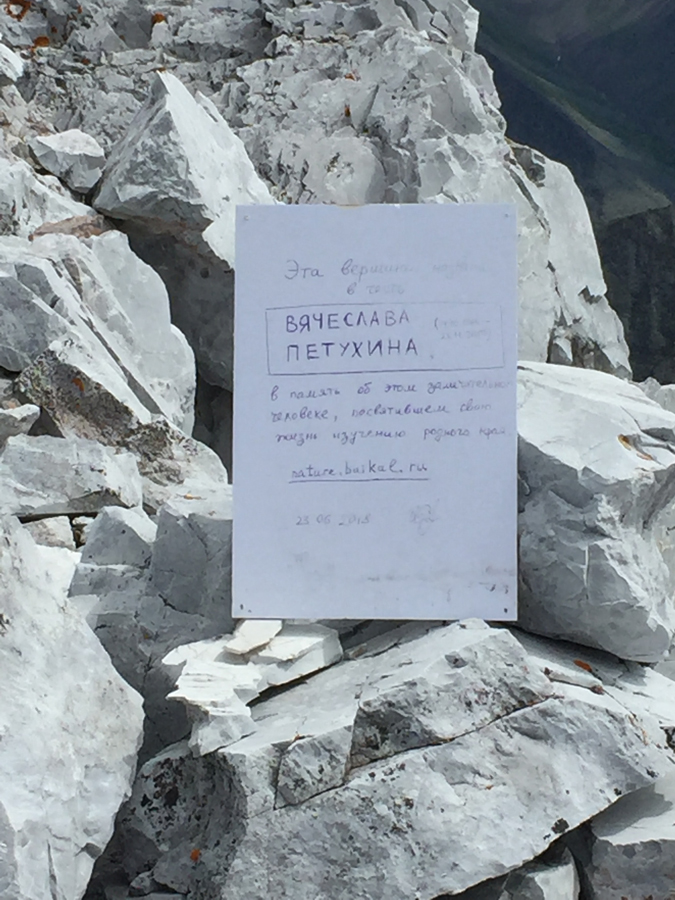 Эта вершина названа
в честь
ВЯЧЕСЛАВА
ПЕТУХИНА
в память об этом замечательном
человеке, посвятившем свою
жизнь изучению родного края.
nature.baikal.ru